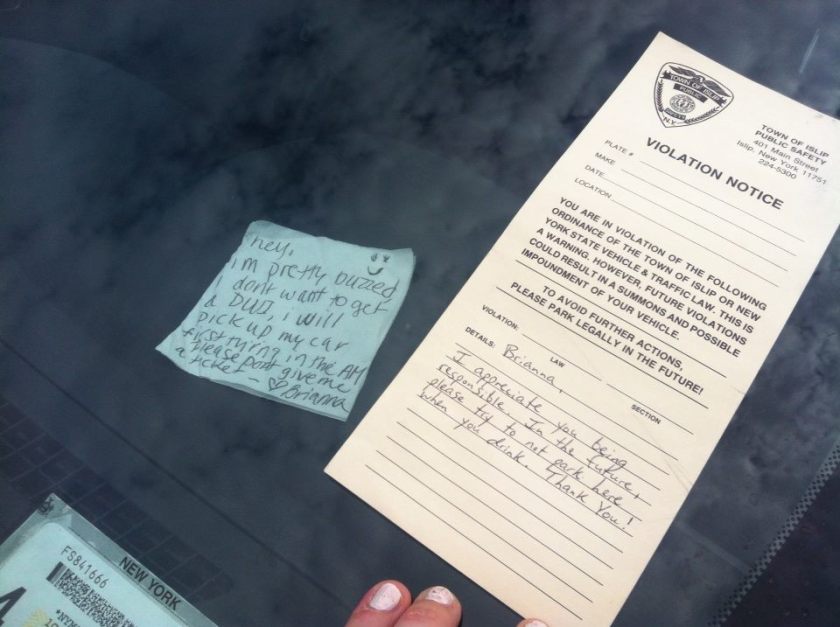 hey,
im pretty buzzed
i dont want to get
a DUI, i will
pick up my car
first thing in the AM
Please dont give me
a ticket - ♡ Brianna
TOWN OF ISLIP
PUBLIC
SAFETY
N.Y.
TOWN OF ISLIP
PUBLIC SAFETY
401 Main Street
Islip, New York 11751
224-5300
VIOLATION NOTICE
PLATE #
MAKE
DATE
LOCATION
YOU ARE IN VIOLATION OF THE FOLLOWING
ORDINANCE OF THE TOWN OF ISLIP OR NEW
YORK STATE VEHICLE & TRAFFIC LAW. THIS IS
A WARNING. HOWEVER, FUTURE VIOLATIONS
COULD RESULT IN A SUMMONS AND POSSIBLE
IMPOUNDMENT OF YOUR VEHICLE.
TO AVOID FURTHER ACTIONS,
PLEASE PARK LEGALLY IN THE FUTURE!
VIOLATION:
LAW
SECTION
DETAILS: Brianna,
I appreciate you being
responsible. In the future,
please try to not park here
when you drink. Thank You!
FS841666
NEW YORK